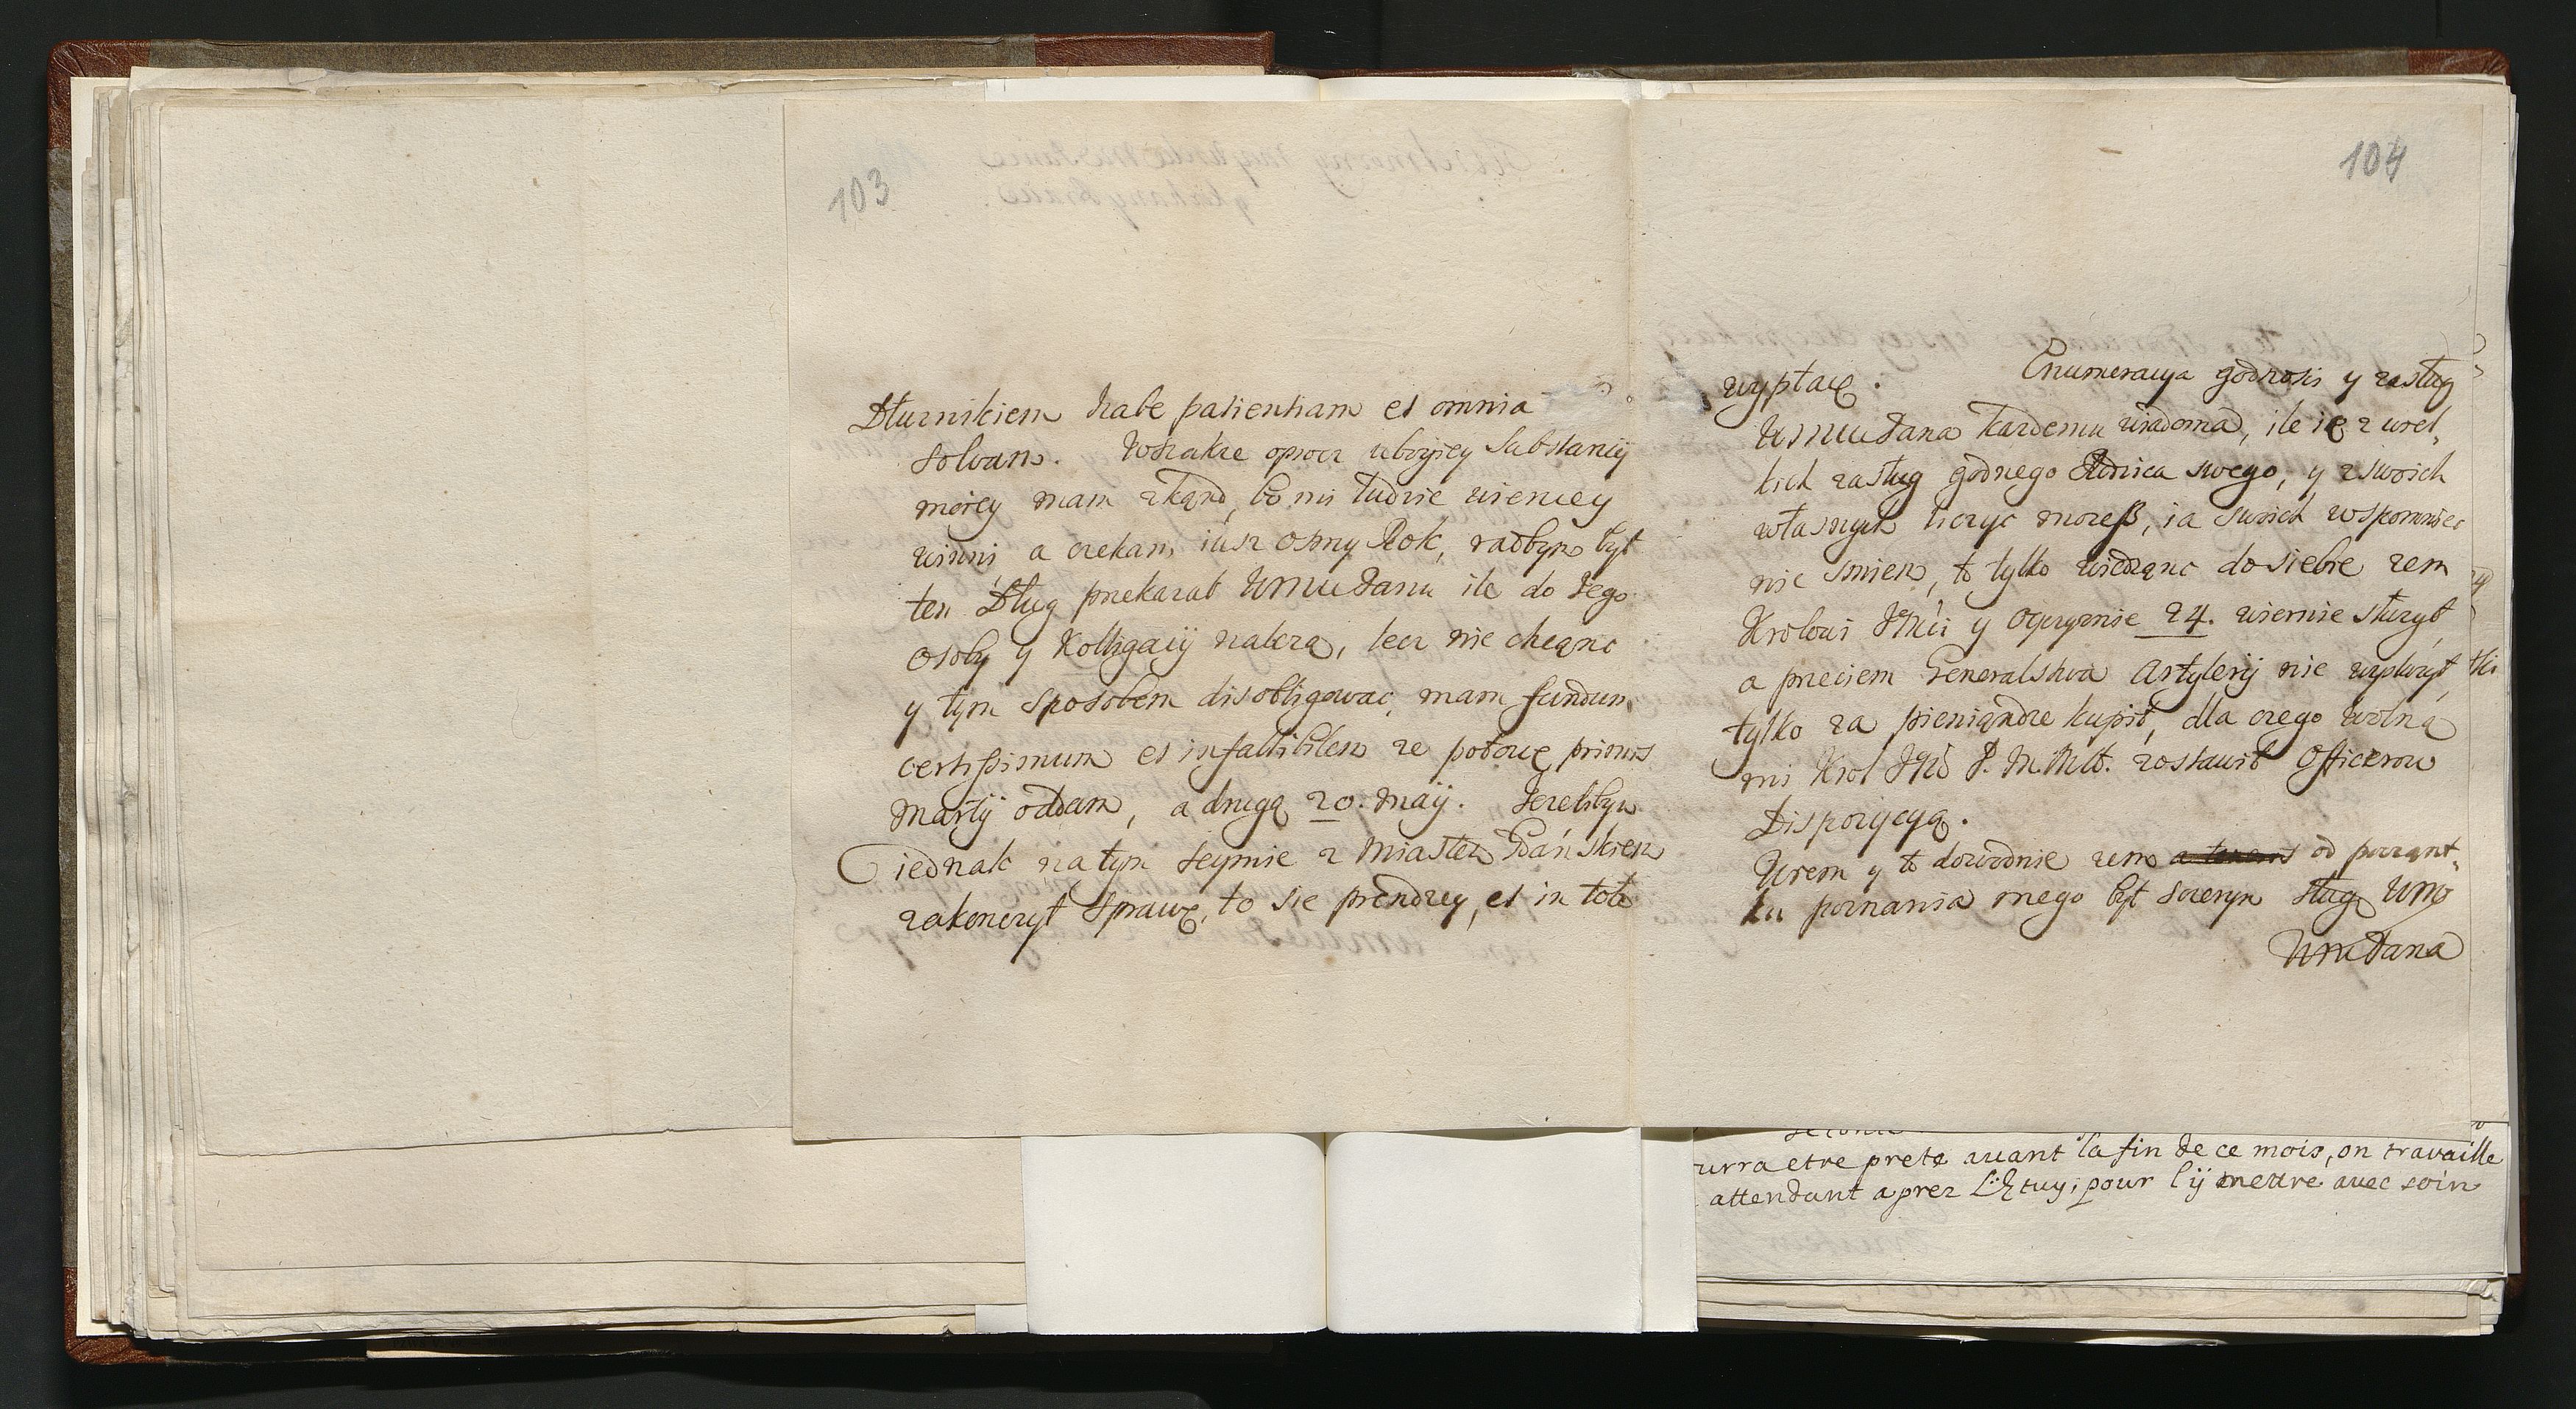 103
Dłuznikiem habe patientiam et omnia
Solvam. Wszakze oprocz ubozszey Substancij
moiey mam zkąnd, bo mi ludzie wiencey
winni a czekam iusz osmy Rok, radbym był
ten Dług przekazał WMMu Panu ile do Jego
Osoby y Kolligacij nalezą, lecz nie chcąnc
y tym sposobem disobligowac, mam fundum
certissimum et infallibilem ze połowę primis
Martij oddam, a drugą 20. Maij. Jezelibym
iednak na tym Seymie z Miastem Gdańskiem
zakonczył Sprawę, to sie prendzey, et in toto
104
wypłacę. Enumeracya godnosci y zasług
WMMu Pana kazdemu wiadoma, ile ie z wiel,
kich zasług godnego Rodzica swego, y z swoich
własnych liczyc mozesz, ia swoich wspomniec
nie smiem, to tylko wiedząnc do siebie zem
Krolowi JMci y Oyczyznie 24. wiernie słuzył,
a przeciem Generalstwa Artylerij nie wysłuzył,
tylko za pieniąndze kupił, dla czego wolną
mi Krol JMć P. M. Młł. zostawił Officerow
Dispozycyą.
Wiem y to dowodnie zem od począnt,
ku poznania mego był szczerym sługą WMo
WM Pana
urra etre prete auant la fin de ce mois, on travaille
attendant aprez L'Etuy, pour l'ÿ mettre avec soin